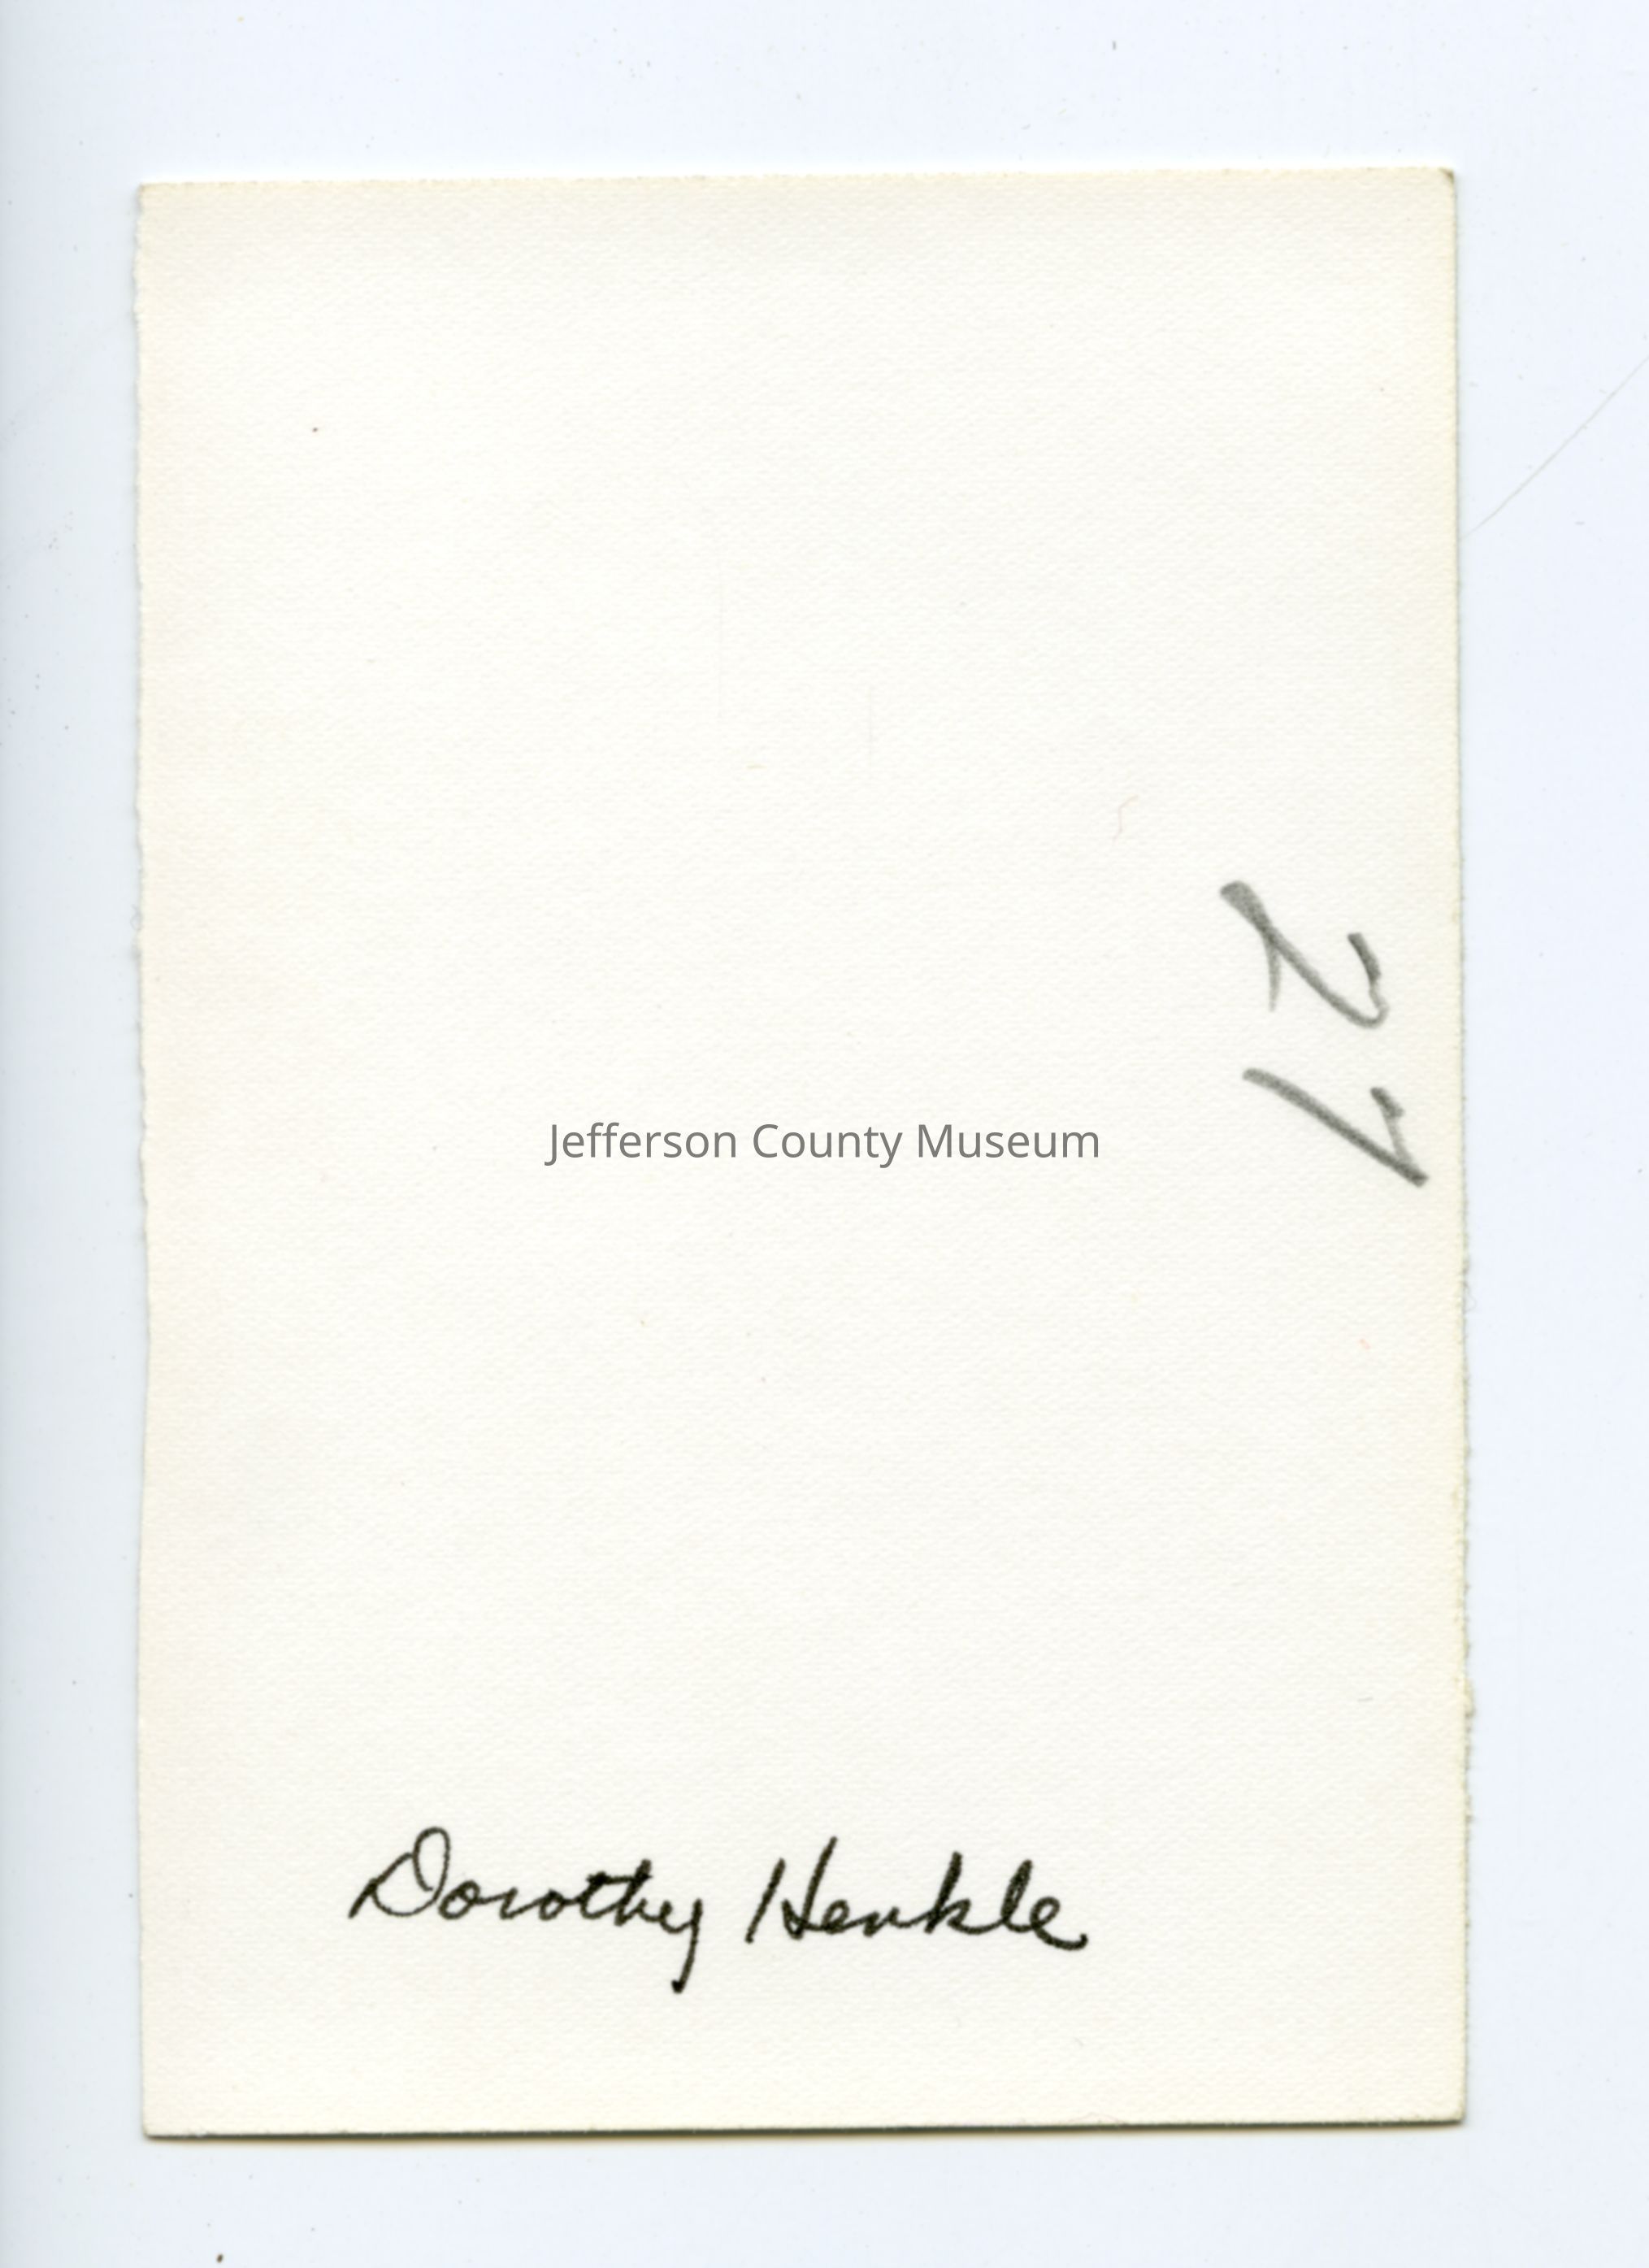 27
Jefferson County Museum
Dorothy Henkle